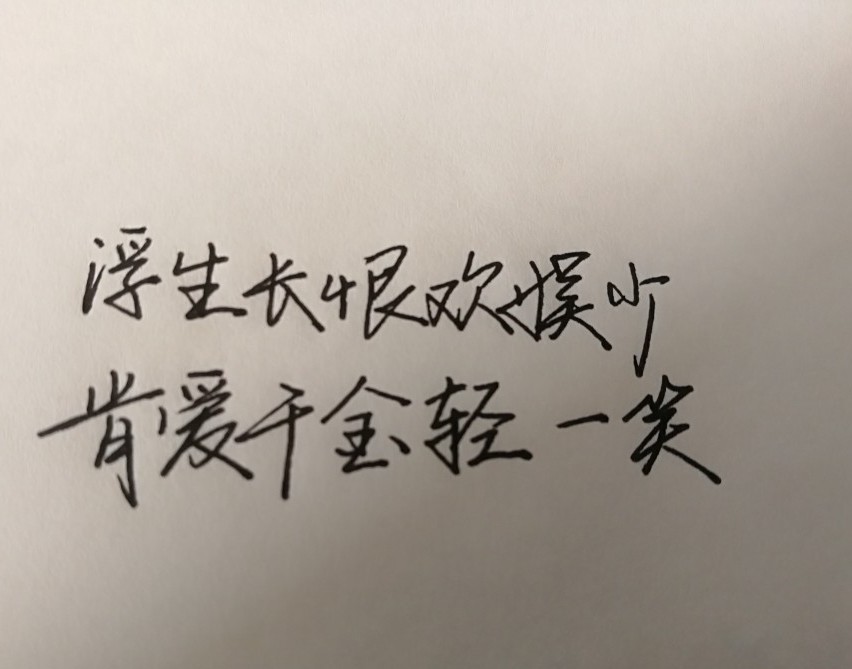 浮生长恨欢娱少
肯爱千金轻一笑